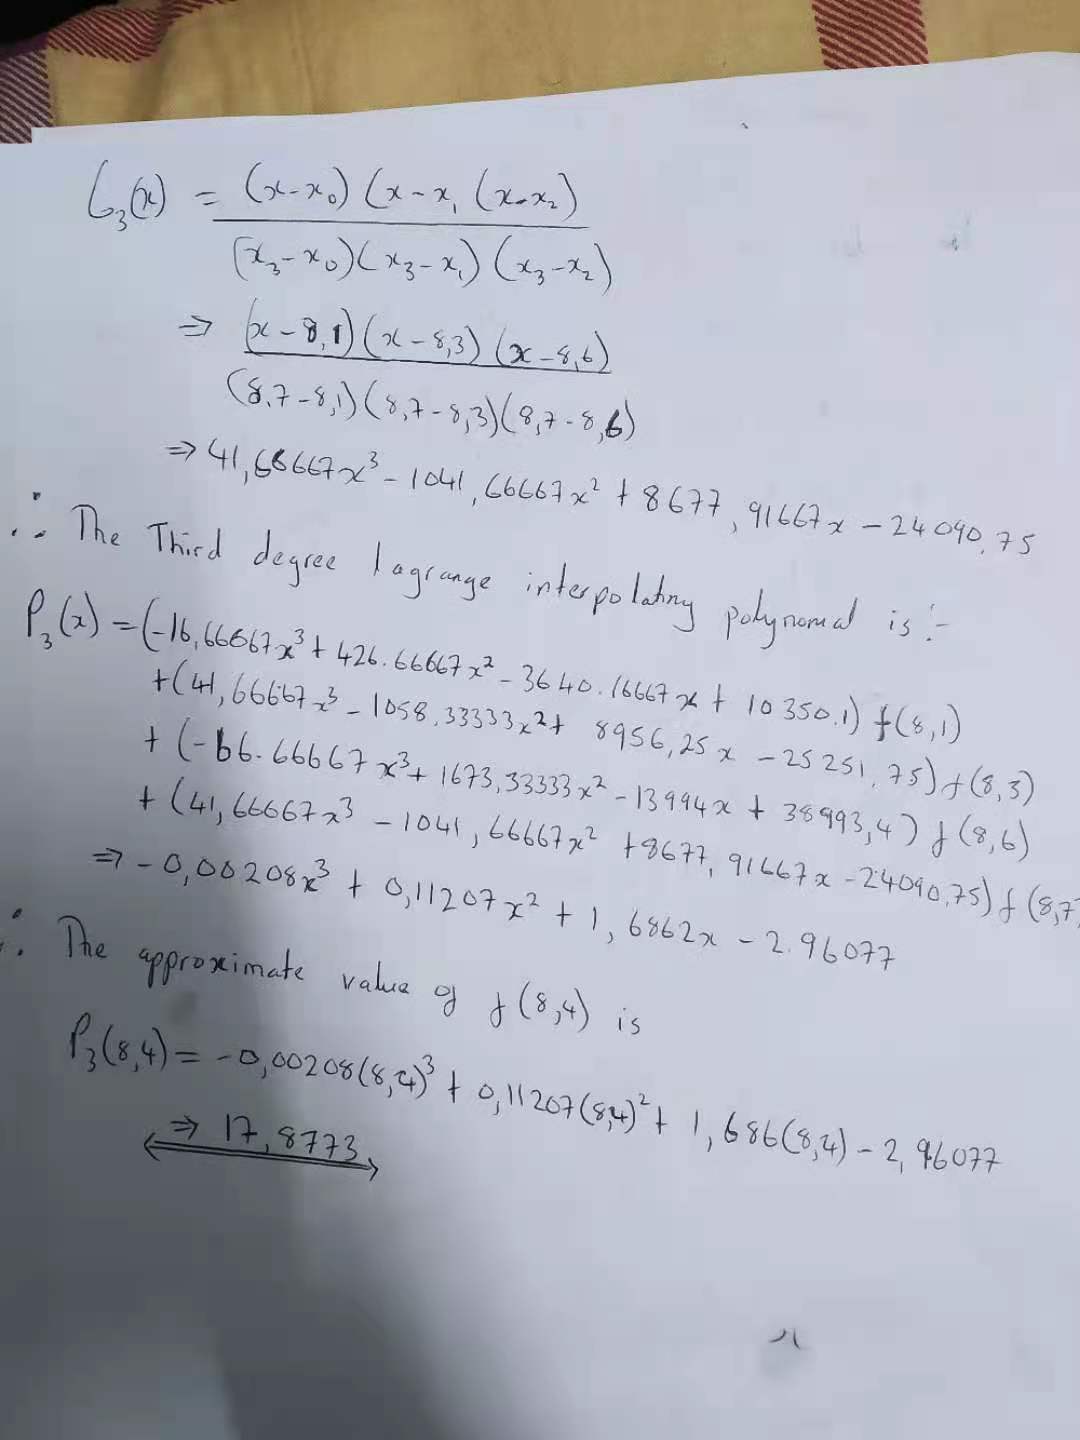 L₃(x) = (x-x₀) (x-x₁ (x-x₂)
(x₃-x₀)(x₃-x₁) (x₃-x₂)
⇒ (x-8,1)(x-8,3)(x-8,6)
(8.7-8,1)(8,7-8,3)(8,7-8,6)
⇒ 41,66667x³ - 1041,66667x² + 8677,91667x - 24090.75
∴ The Third degree lagrange interpolating polynomial is :-
P₃(x) = (-16,66667x³ + 426.66667x² - 3640.16667x + 10350.1) f(8,1)
+(41,66667x³ - 1058,33333x² + 8956,25x - 25251,75) f(8,3)
+ (-66.66667x³ + 1673,33333x² - 13994x + 38993,4) f(8,6)
+ (41,66667x³ - 1041,66667x² + 8677,91667x - 24090,75) f(8,7)
⇒ -0,00208x³ + 0,11207x² + 1,6862x - 2.96077
∴ The approximate value of f(8,4) is
P₃(8,4) = -0,00208(8,4)³ + 0,11207(8,4)² + 1,686(8,4) - 2,96077
⇒ 17,8773